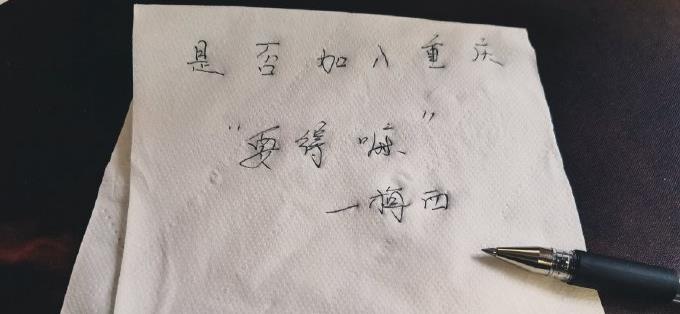 是否加入重庆
"要得嘛"
一梅西